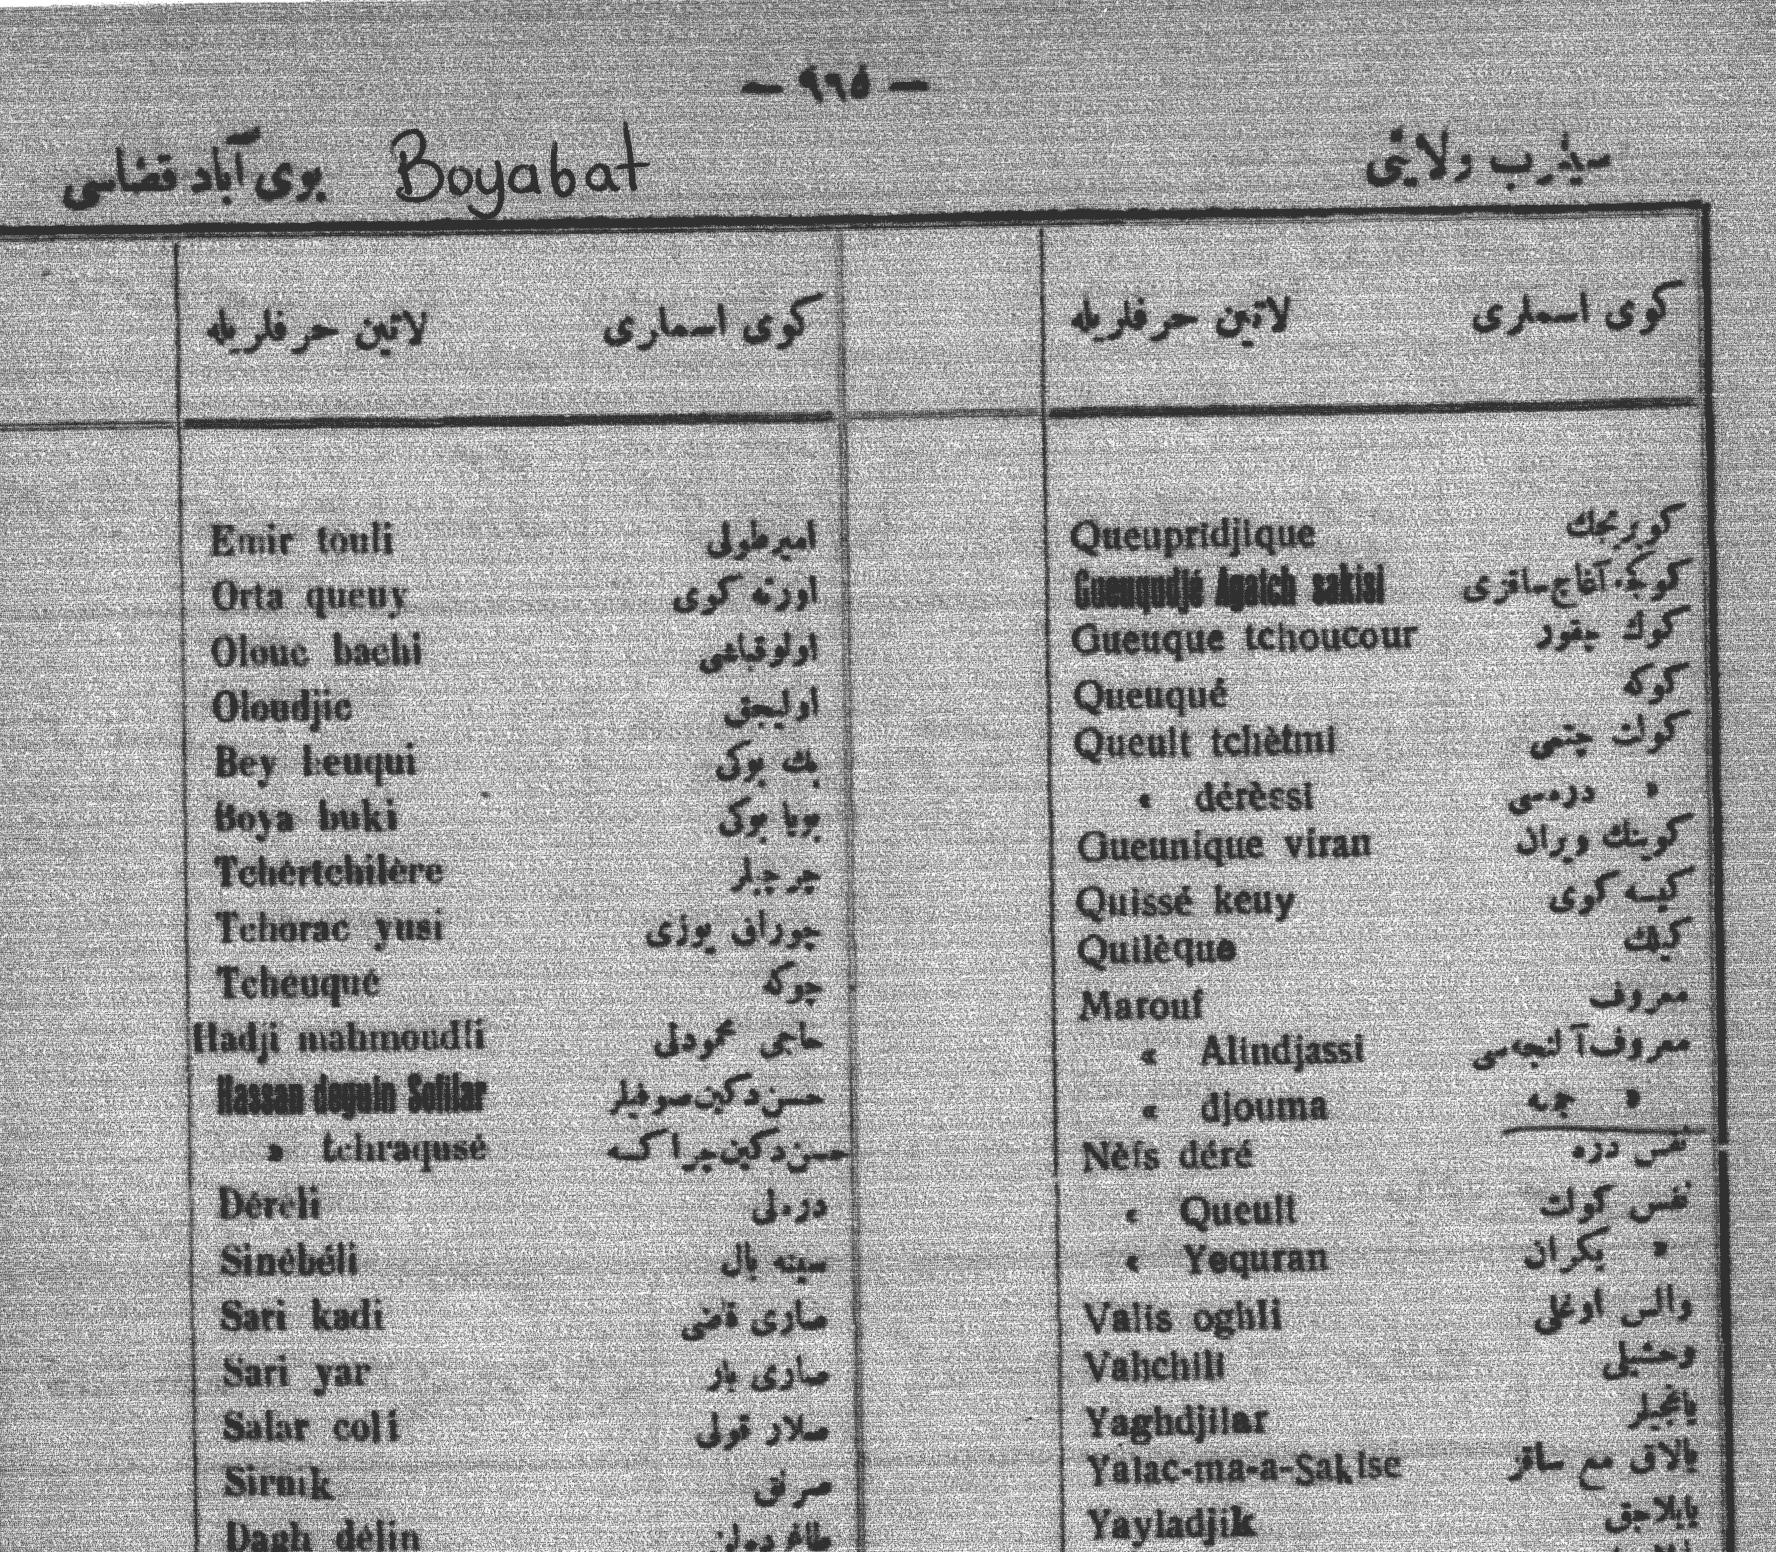 — ٩٦٥ —
سینوب ولایتی
Boyabat بوی آباد قضاسی
کوی اسملری لاتین حرفلریله
Queupridjique کوپریجك
Gueuqudjé Agatch sakisi کوکجه آغاج ساقزی
Gueuque tchoucour کوك چقور
Queuqué کوکه
Queult tchètmi کولت چتمی
« dérèssi » دره‌سی
Gueunique viran کوینك ویران
Quissé keuy کیسه کوی
Quilèque کیلك
Marouf معروف
« Alindjassi معروف آلنجه‌سی
« djouma » جمعه
Nèfs déré نفس دره
« Queult نفس کولت
« Yequran » یکران
Valis oghli والس اوغلی
Vahchili وحشیلی
Yaghdjilar یاغجیلر
Yalac-ma-a-Sakise یالاق مع ساقز
Yayladjik یایلاجق
کوی اسماری لاتین حرفلریله
Emir touli امیرطولی
Orta queuy اورته کوی
Olouc bachi اولوقباشی
Oloudjic اولیجق
Bey beuqui بك بوکی
Boya buki بویا بوکی
Tchértchilère چرچیلر
Tchorac yusi چوراق یوزی
Tcheuqué چوکه
Hadji mahmoudli حاجی محمودلی
Hassan deguin Sofilar حسن دکین صوفیلر
» tchraqusé حسن دکین چراکسه
Déreli دره‌لی
Sinébéli سینه بال
Sari kadi صاری قاضی
Sari yar صاری یار
Salar coli صلار قولی
Sirnik صرنق
Dagh délin